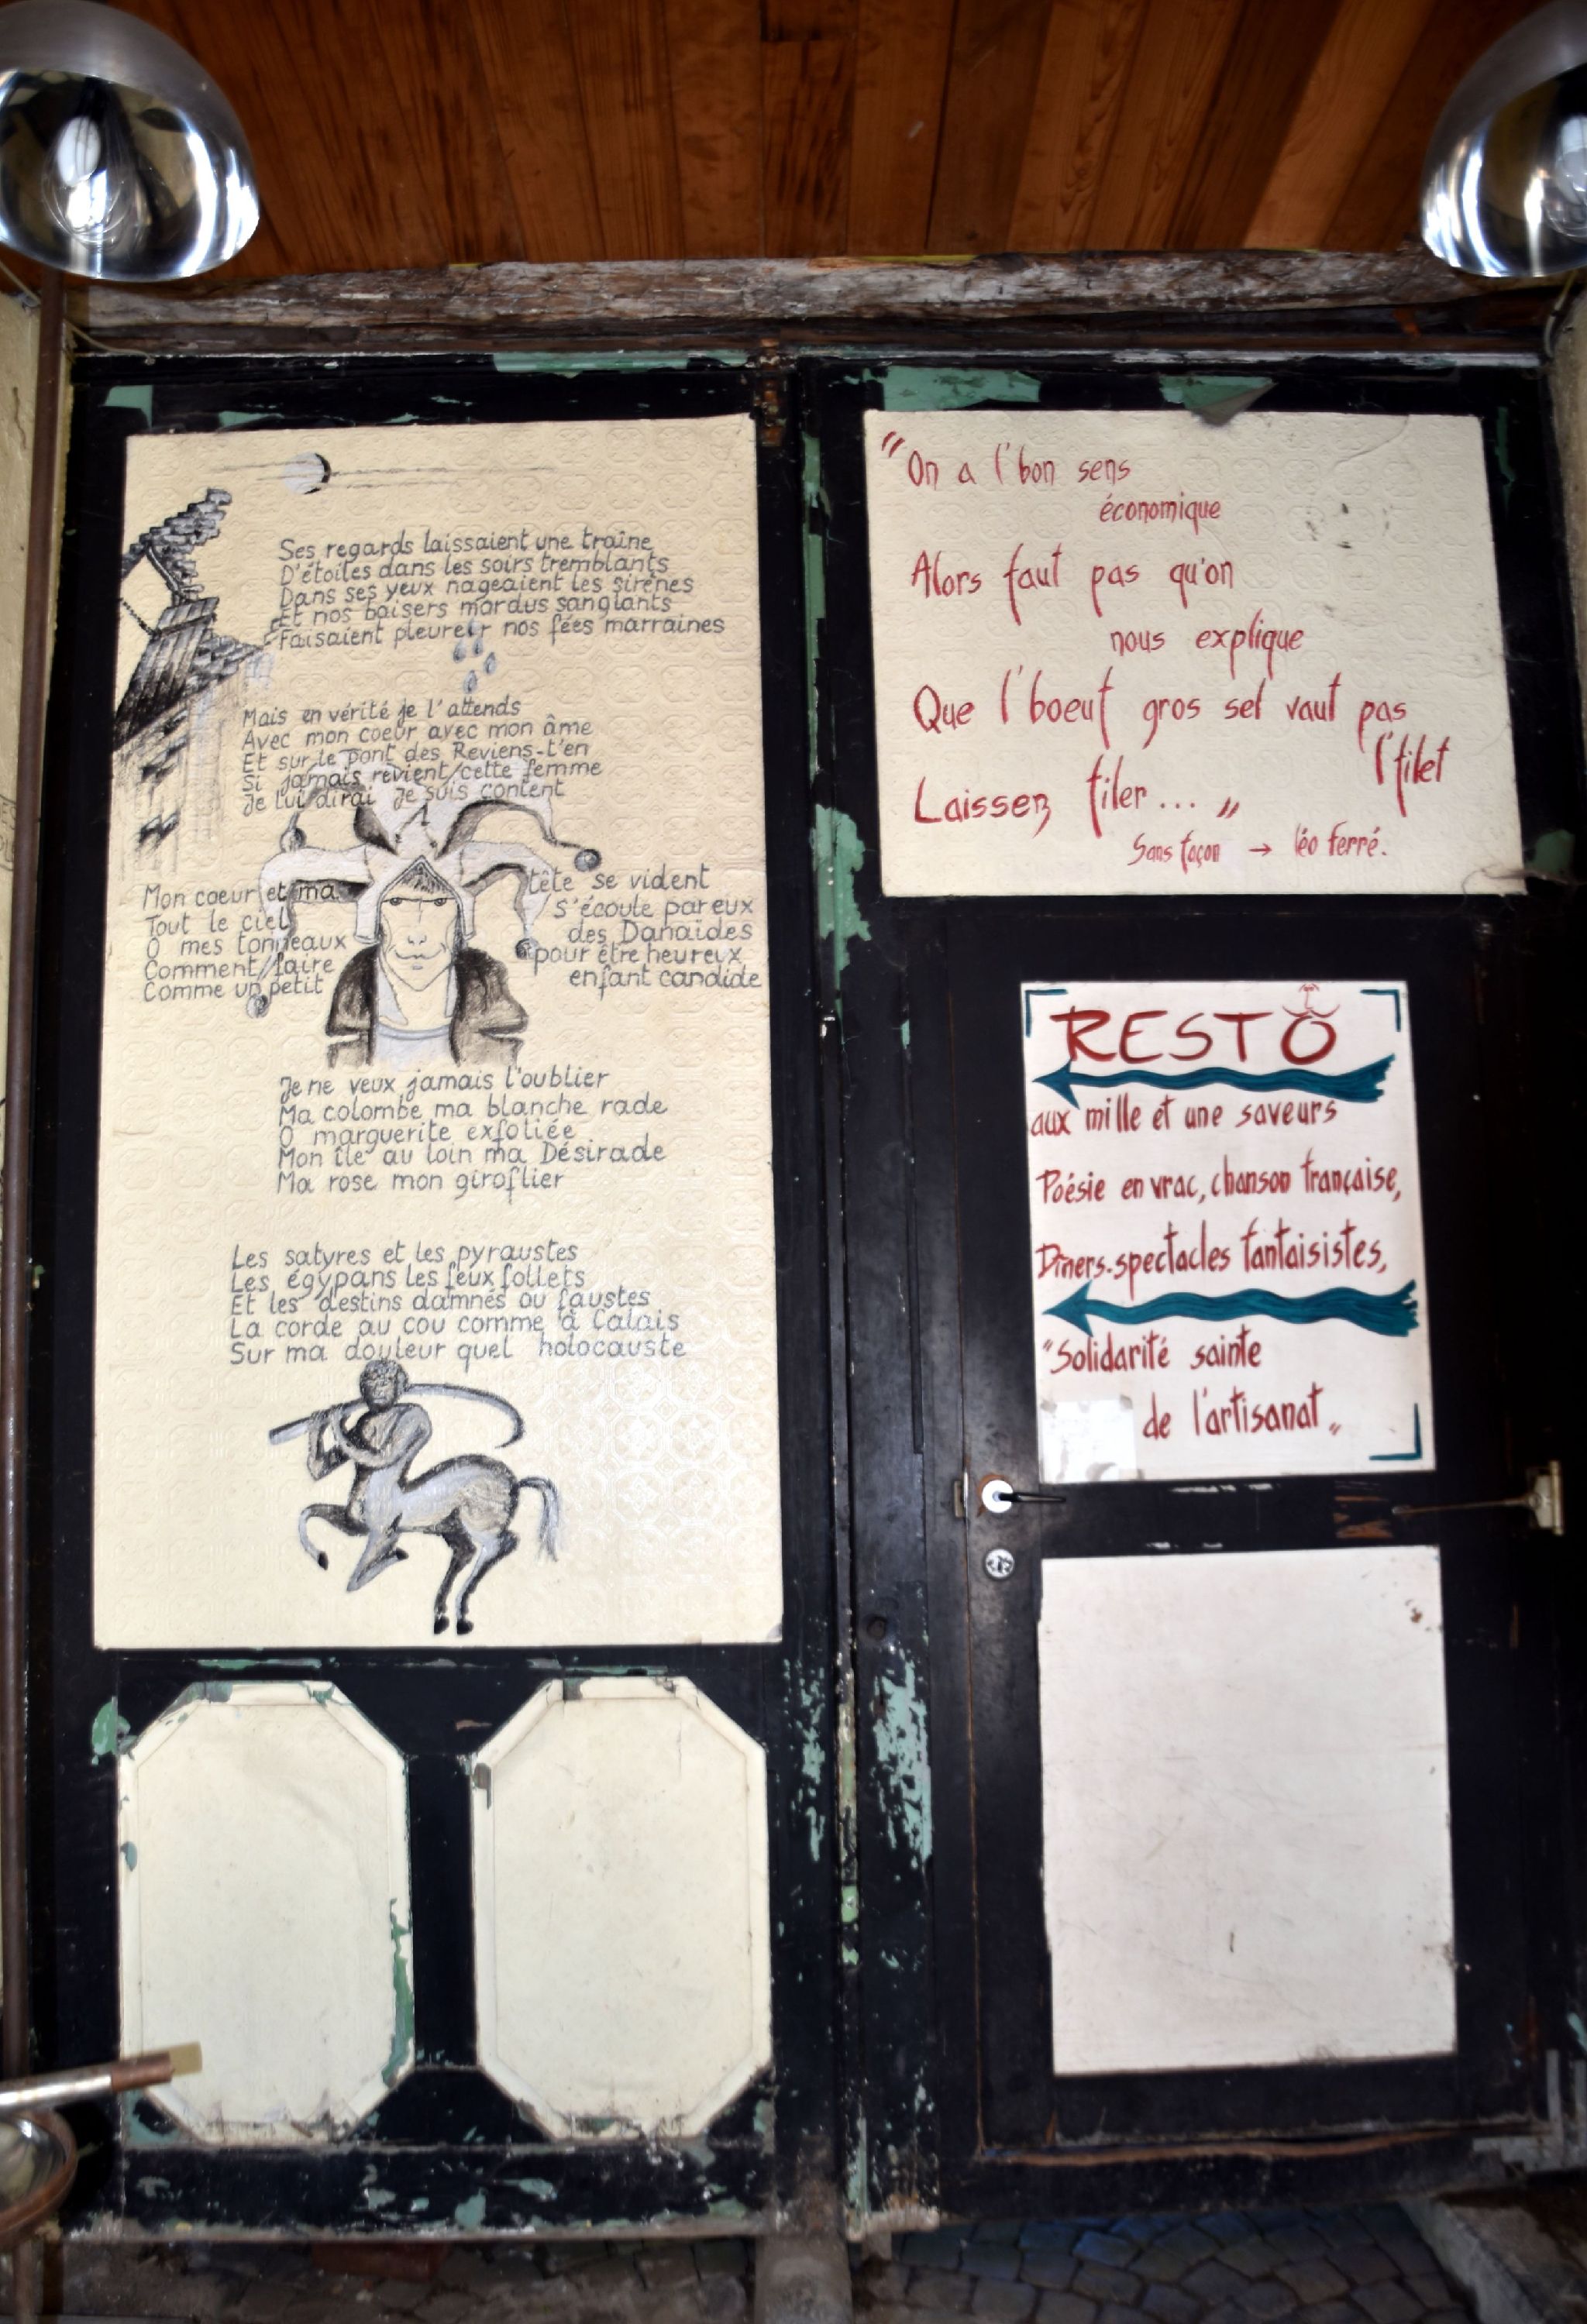 Ses regards laissaient une traîne
D'étoiles dans les soirs tremblants
Dans ses yeux nageaient les sirènes
Et nos baisers mordus sanglants
Faisaient pleurer nos fées marraines
Mais en vérité je l'attends
Avec mon coeur avec mon âme
Et sur le pont des Reviens-t'en
Si jamais revient cette femme
Je lui dirai Je suis content
Mon coeur et ma tête se vident
Tout le ciel s'écoule par eux
O mes tonneaux des Danaïdes
Comment faire pour être heureux
Comme un petit enfant candide
Je ne veux jamais l'oublier
Ma colombe ma blanche rade
O marguerite exfoliée
Mon île au loin ma Désirade
Ma rose mon giroflier
Les satyres et les pyraustes
Les égypans les feux follets
Et les destins damnés ou faustes
La corde au cou comme à Calais
Sur ma douleur quel holocauste
"On a l'bon sens
économique
Alors faut pas qu'on
nous explique
Que l'boeuf gros sel vaut pas
l'filet
Laissez filer... "
Sans façon → léo ferré.
RESTO
aux mille et une saveurs
Poésie en vrac, chanson française,
Dîners-spectacles fantaisistes,
"Solidarité sainte
de l'artisanat"